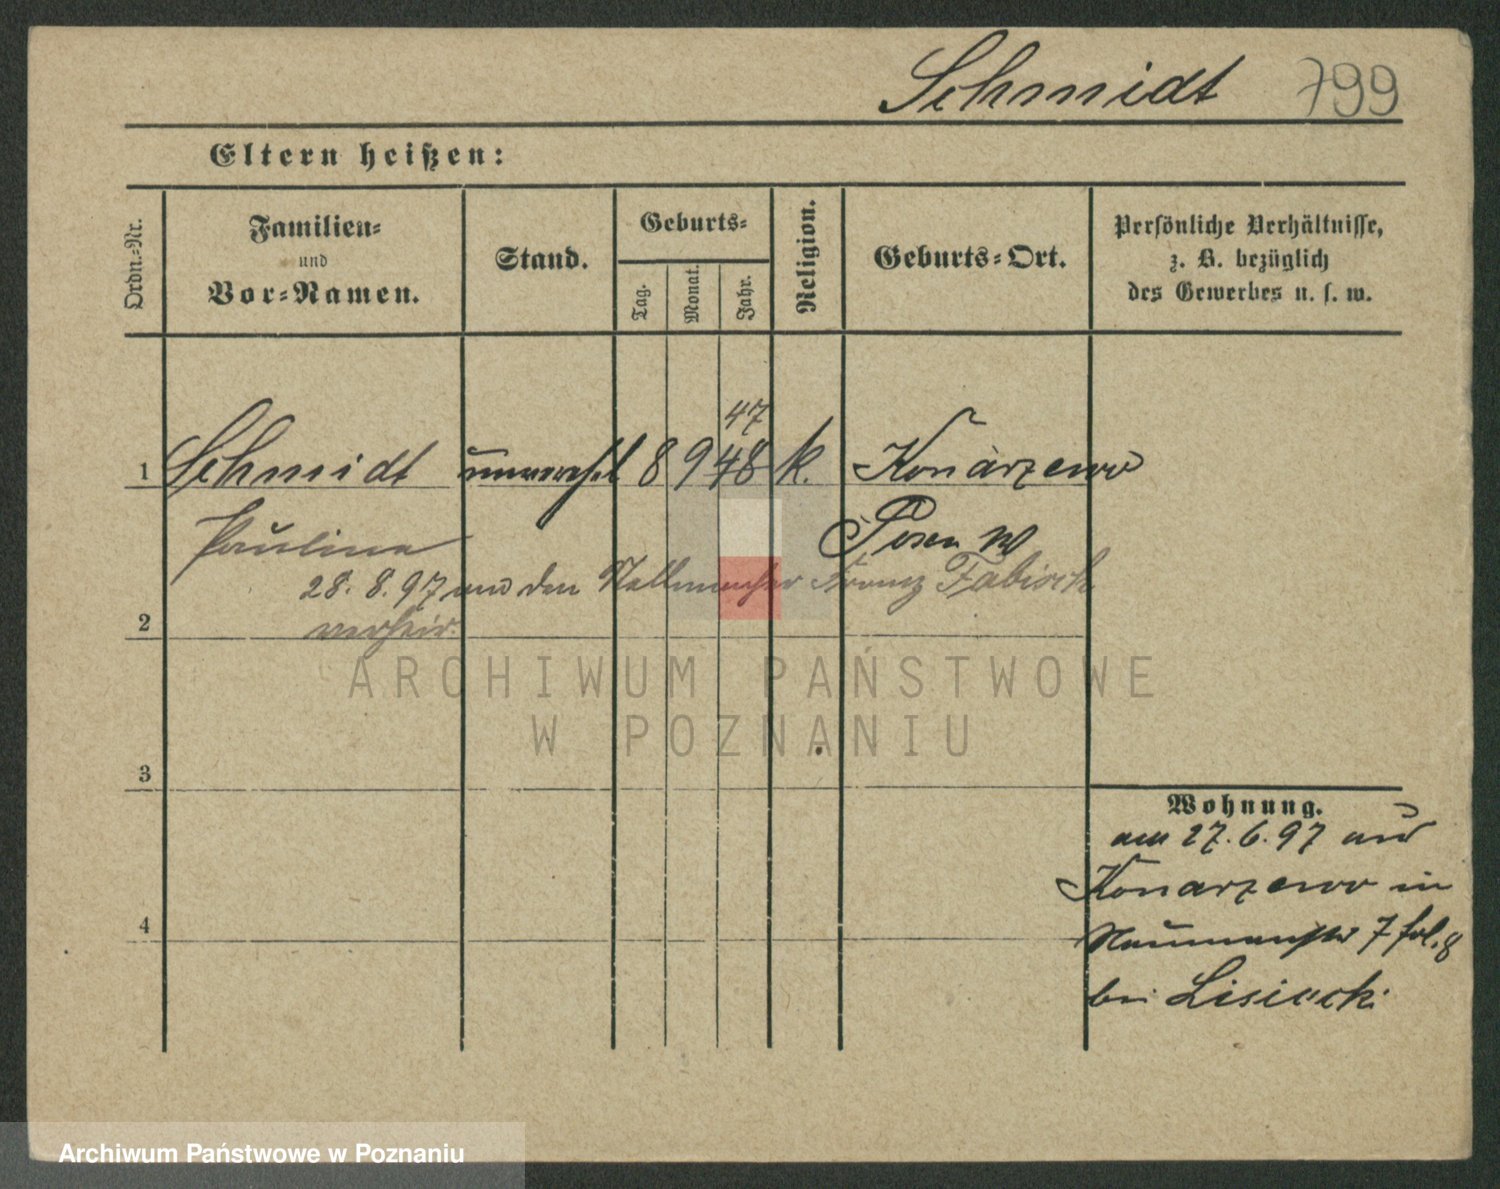 Schmidt 799
Eltern heißen:
Ordn.-Nr.
Familien-
und
Vor-Namen.
Stand.
Geburts-
Tag.
Monat.
Jahr.
Religion.
Geburts-Ort.
Persönliche Verhältnisse,
z. B. bezüglich
des Gewerbes u. s. w.
47
1 Schmidt unverehel 8 9 48 k. Konarzewo
Paulina Posen W
28. 8. 97 mit den Stellmacher Franz Fabisch
2 verheir.
ARCHIWUM PAŃSTWOWE
W POZNANIU
3
Wohnung.
am 27. 6. 97 aus
Konarzewo in
4
Naumannstr 7 fol. 8
bei Lisiecki
Archiwum Państwowe w Poznaniu